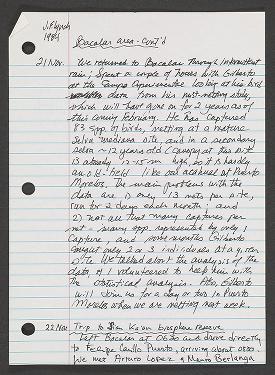 J.F. Lynch
1984
Bacalar area - Cont'd
21 Nov. We returned to Bacalar through intermittent
rain; Spent a couple of hours with Gilberto
at the Campo Experimental looking at his bird
data from his mist-netting study,
which will have gone on for 2 years as of
this coming February. He has captured
83 spp. of birds, netting at a mature
selva mediana site, and in a secondary
selva ~12 years old (canopy at this site
is already 12-15 m high, so it is hardly
an old-field like our acahual at Puerto
Morelos. The main problems with the
data are 1) only 13 nets per site,
run for 2 days each month, and
2) not all that many captures per
net - many spp. represented by only 1
capture, and some months Gilberto
caught only 2 or 3 individuals at a given
site. We talked about the analysis of the
data, & I volunteered to help him with
the statistical analysis. Also, Gilberto
will join us for a day or two in Puerto
Morelos when we are netting next week.
22 Nov Trip to Sian Ka'an biosphere reserve
Left Bacalar at 0630 and drove directly
to Felipe Carrillo Puerto, arriving about 0830.
We met Arturo Lopez & Marco Berlanga